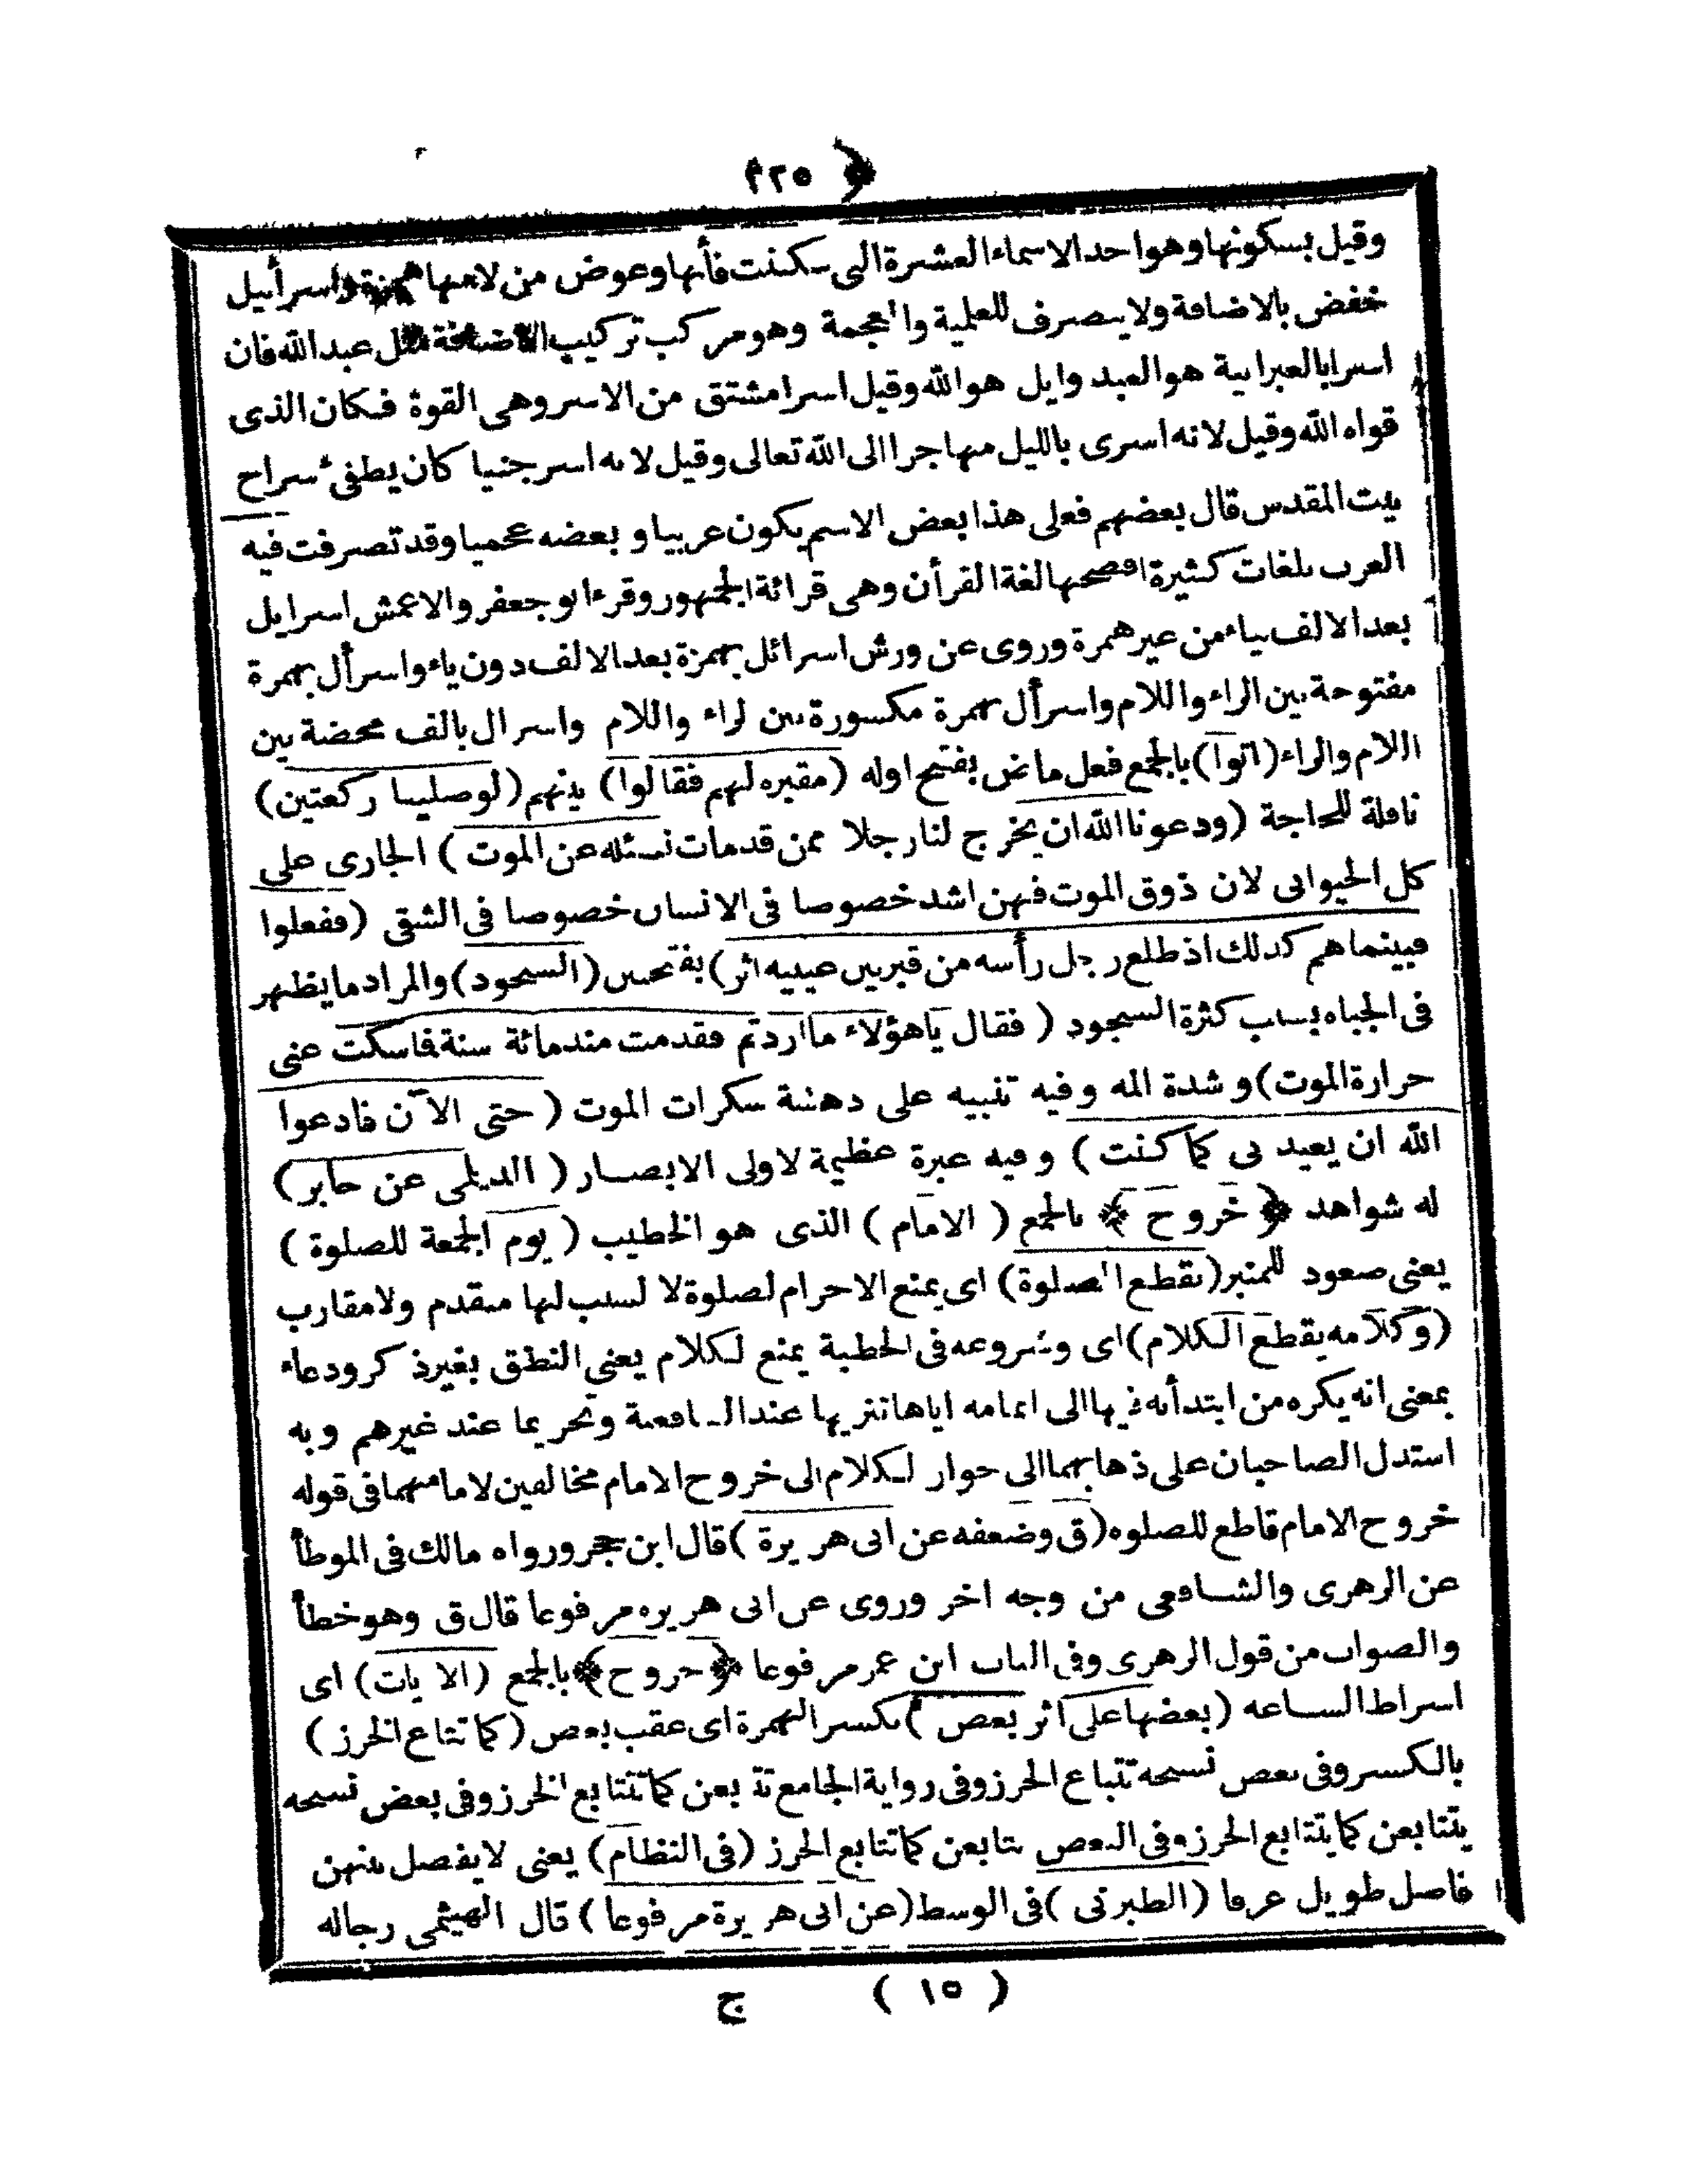 ﴿ ٢٢٥
وقيل بسكونها وهو احد الاسماء العشرة التى سكنت فأبها وعوض من لامها همزة واسرأيل
خفض بالاضافة ولا ينصرف للعلمية والعجمة وهو مركب تركيب الاضافة مثل عبد الله فان
اسرا بالعبرابية هو العبد وايل هو الله وقيل اسرا مشتق من الاسر وهى القوة فكان الذى
قواه الله وقيل لانه اسرى بالليل مهاجرا الى الله تعالى وقيل لانه اسر جنيا كان يطفئ سراج
بيت المقدس قال بعضهم فعلى هذا بعض الاسم يكون عربيا و بعضه عجميا وقد تصرفت فيه
العرب بلغات كثيرة افصحها لغة القرأن وهى قرائة الجمهور وقرء ابو جعفر والاعمش اسرايل
بعد الالف بياء من غير همزة وروى عن ورش اسرائل بهمزة بعد الالف دون ياء واسرأل بهمزة
مفتوحة بين الراء واللام واسرأل بهمزة مكسورة بين لراء واللام واسرال بالف محضة بين
اللام والراء (اتوا) بالجمع فعل ماض بفتح اوله (مقبره لهم فقالوا) بينهم (لوصلينا ركعتين)
نافلة للحاجة (ودعونا الله ان يخرج لنا رجلا ممن قدمات نسئله عن الموت) الجارى على
كل الحيوانى لان ذوق الموت فهن اشد خصوصا فى الانسان خصوصا فى الشقى (ففعلوا
فبينما هم كذلك اذ طلع رجل رأسه من قبر بين عينيه اثر) بفتحين (السجود) والمراد ما يظهر
فى الجباه بسبب كثرة السجود (فقال ياهؤلاء ما اردتم فقدمت منذ مائة سنة فاسكت عنى
حرارة الموت) و شدة المه وفيه تنبيه على دهشة سكرات الموت (حتى الآن فادعوا
الله ان يعيد نى كما كنت) وفيه عبرة عظيمة لاولى الابصار (الديلمى عن جابر)
له شواهد ﴿خروج﴾ بالجمع (الامام) الذى هو الخطيب (يوم الجمعة للصلوة)
يعنى صعود للمنبر (يقطع الصلوة) اى يمنع الاحرام لصلوة لا لسبب لها متقدم ولا مقارب
(وكلامه يقطع الكلام) اى وشروعه فى الخطبة يمنع لكلام يعنى النطق بغير ذكر ودعاء
بمعنى انه يكره من ابتدأئه فيها الى اتمامه اياها تنزيها عند الشافعية وتحريما عند غيرهم وبه
استدل الصاحبان على ذهابهما الى جواز لكلام الى خروج الامام مخالفين لامامهما فى قوله
خروج الامام قاطع للصلوه (ق وضعفه عن ابى هريرة) قال ابن حجر ورواه مالك فى الموطأ
عن الزهرى والشافعى من وجه اخر وروى عن ابى هريره مرفوعا قال ق وهو خطأ
والصواب من قول الزهرى وفى الباب ابن عمر مرفوعا ﴿خروج﴾ بالجمع (الايات) اى
اسراط الساعه (بعضها على اثر بعض) بكسر الهمزة اى عقب بعض (كما تتاع الخرز)
بالكسر وفى بعض نسخه تتباع الخرز وفى رواية الجامع تتابعن كما تتتابع الخرز وفى بعض نسخه
يتتابعن كما يتتابع الخرز وفى البعض تتابعن كما تتابع الخرز (فى النظام) يعنى لا يفصل بينهن
فاصل طويل عرفا (الطبرنى) فى الوسط (عن ابى هريرة مرفوعا) قال الهيثمى رجاله
( ١٥ ) ج